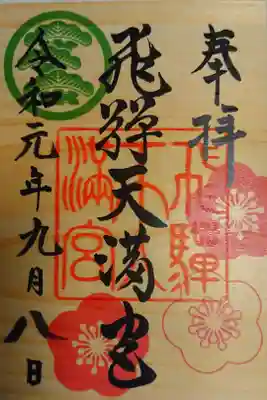 奉拝
飛騨天満宮
飛騨天満宮
令和元年九月八日